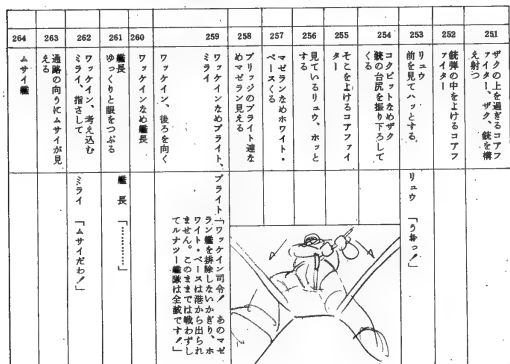 251
ザクの上を過ぎるコアフ
ァイター、ザク、銃を構
え射つ
252
銃弾の中をよけるコアフ
ァイター
253
リュウ
前を見てハッとする。
リュウ 「うおっ!」
254
コクピットなめザク
銃の台尻を振り下ろして
くる
255
そこをよけるコアファイ
ター
256
見ているリュウ、ホッと
する
257
マゼランなめホワイト・
ベースくる
258
ブリッジのブライト達な
めマゼラン見える
259
ワッケインなめブライト、
ミライ
ブライト「ワッケイン司令! あのマゼ
ラン艦を排除しないかぎり、ホ
ワイト・ベースは港から出られ
ません。このままでは戦わずし
てルナツー艦隊は全滅です!」
ワッケイン、後ろを向く
260
ワッケインなめ艦長
261
艦長
ゆっくりと眼をつぶる
艦 長 「…………」
262
ワッケイン、考え込む
ミライ、指さして
ミライ 「ムサイだわ!」
263
通路の向うにムサイが見
える
264
ムサイ艦